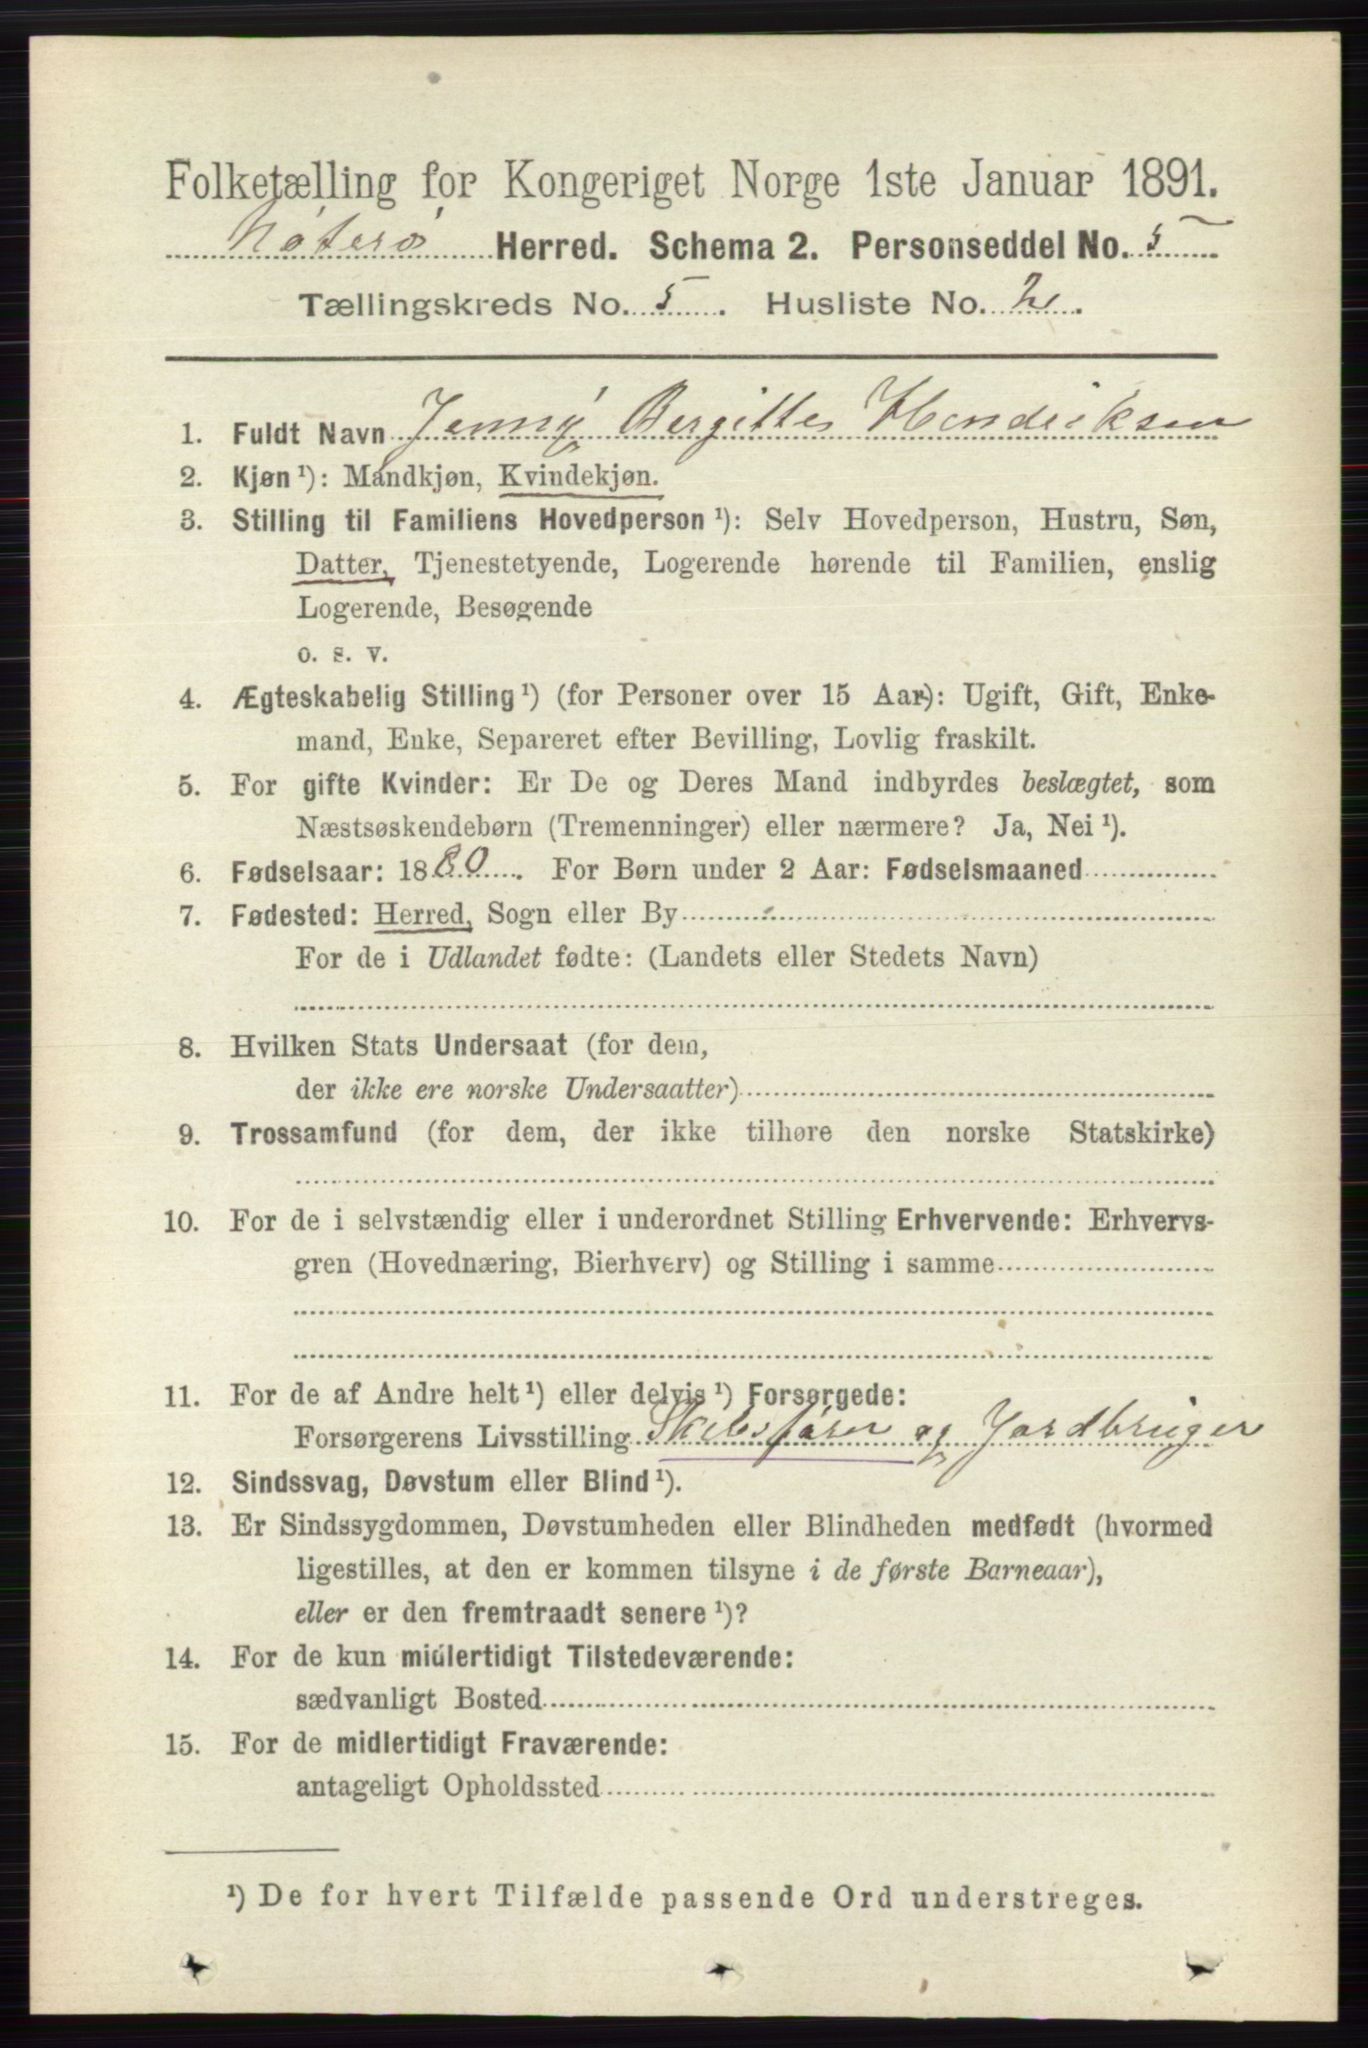 Folketælling for Kongeriget Norge 1ste Januar 1891.
Nøterø Herred. Schema 2. Personseddel No. 5
Tællingskreds No. 5. Husliste No. 2.
1. Fuldt Navn Jenny Bergitte Hendriksen
2. Kjøn¹): Mandkjøn, Kvindekjøn.
3. Stilling til Familiens Hovedperson¹): Selv Hovedperson, Hustru, Søn,
Datter, Tjenestetyende, Logerende hørende til Familien, enslig
Logerende, Besøgende
o. s. v.
4. Ægteskabelig Stilling¹) (for Personer over 15 Aar): Ugift, Gift, Enke-
mand, Enke, Separeret efter Bevilling, Lovlig fraskilt.
5. For gifte Kvinder: Er De og Deres Mand indbyrdes beslægtet, som
Næstsøskendebørn (Tremenninger) eller nærmere? Ja, Nei¹).
6. Fødselsaar: 1880. For Børn under 2 Aar: Fødselsmaaned
7. Fødested: Herred, Sogn eller By
For de i Udlandet fødte: (Landets eller Stedets Navn)
8. Hvilken Stats Undersaat (for dem,
der ikke ere norske Undersaatter)
9. Trossamfund (for dem, der ikke tilhøre den norske Statskirke)
10. For de i selvstændig eller i underordnet Stilling Erhvervende: Erhvervs-
gren (Hovednæring, Bierhverv) og Stilling i samme
11. For de af Andre helt¹) eller delvis¹) Forsørgede:
Forsørgerens Livsstilling Skibsfører og Jordbruger
12. Sindssvag, Døvstum eller Blind¹).
13. Er Sindssygdommen, Døvstumheden eller Blindheden medfødt (hvormed
ligestilles, at den er kommen tilsyne i de første Barneaar),
eller er den fremtraadt senere¹)?
14. For de kun midlertidigt Tilstedeværende:
sædvanligt Bosted
15. For de midlertidigt Fraværende:
antageligt Opholdssted
¹) De for hvert Tilfælde passende Ord understreges.